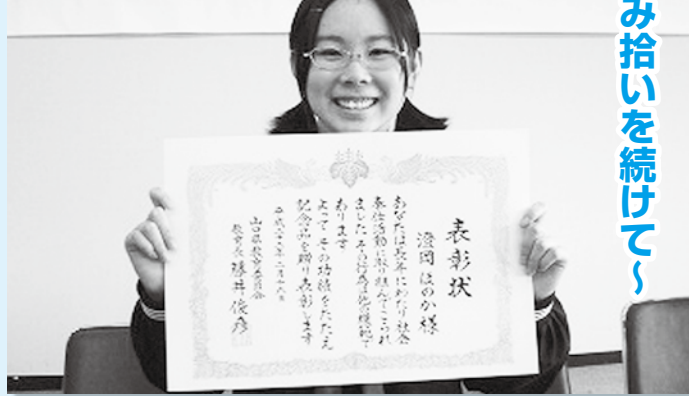 み拾いを続けて～
表彰状
澄岡 ほのか 様
あなたは長年にわたり社会
奉仕活動に取り組んでこられ
ました その行為は他の模範で
あります
よって その功績をたたえ
記念品を贈り表彰します
山口県教育委員会
教育長 藤井俊彦